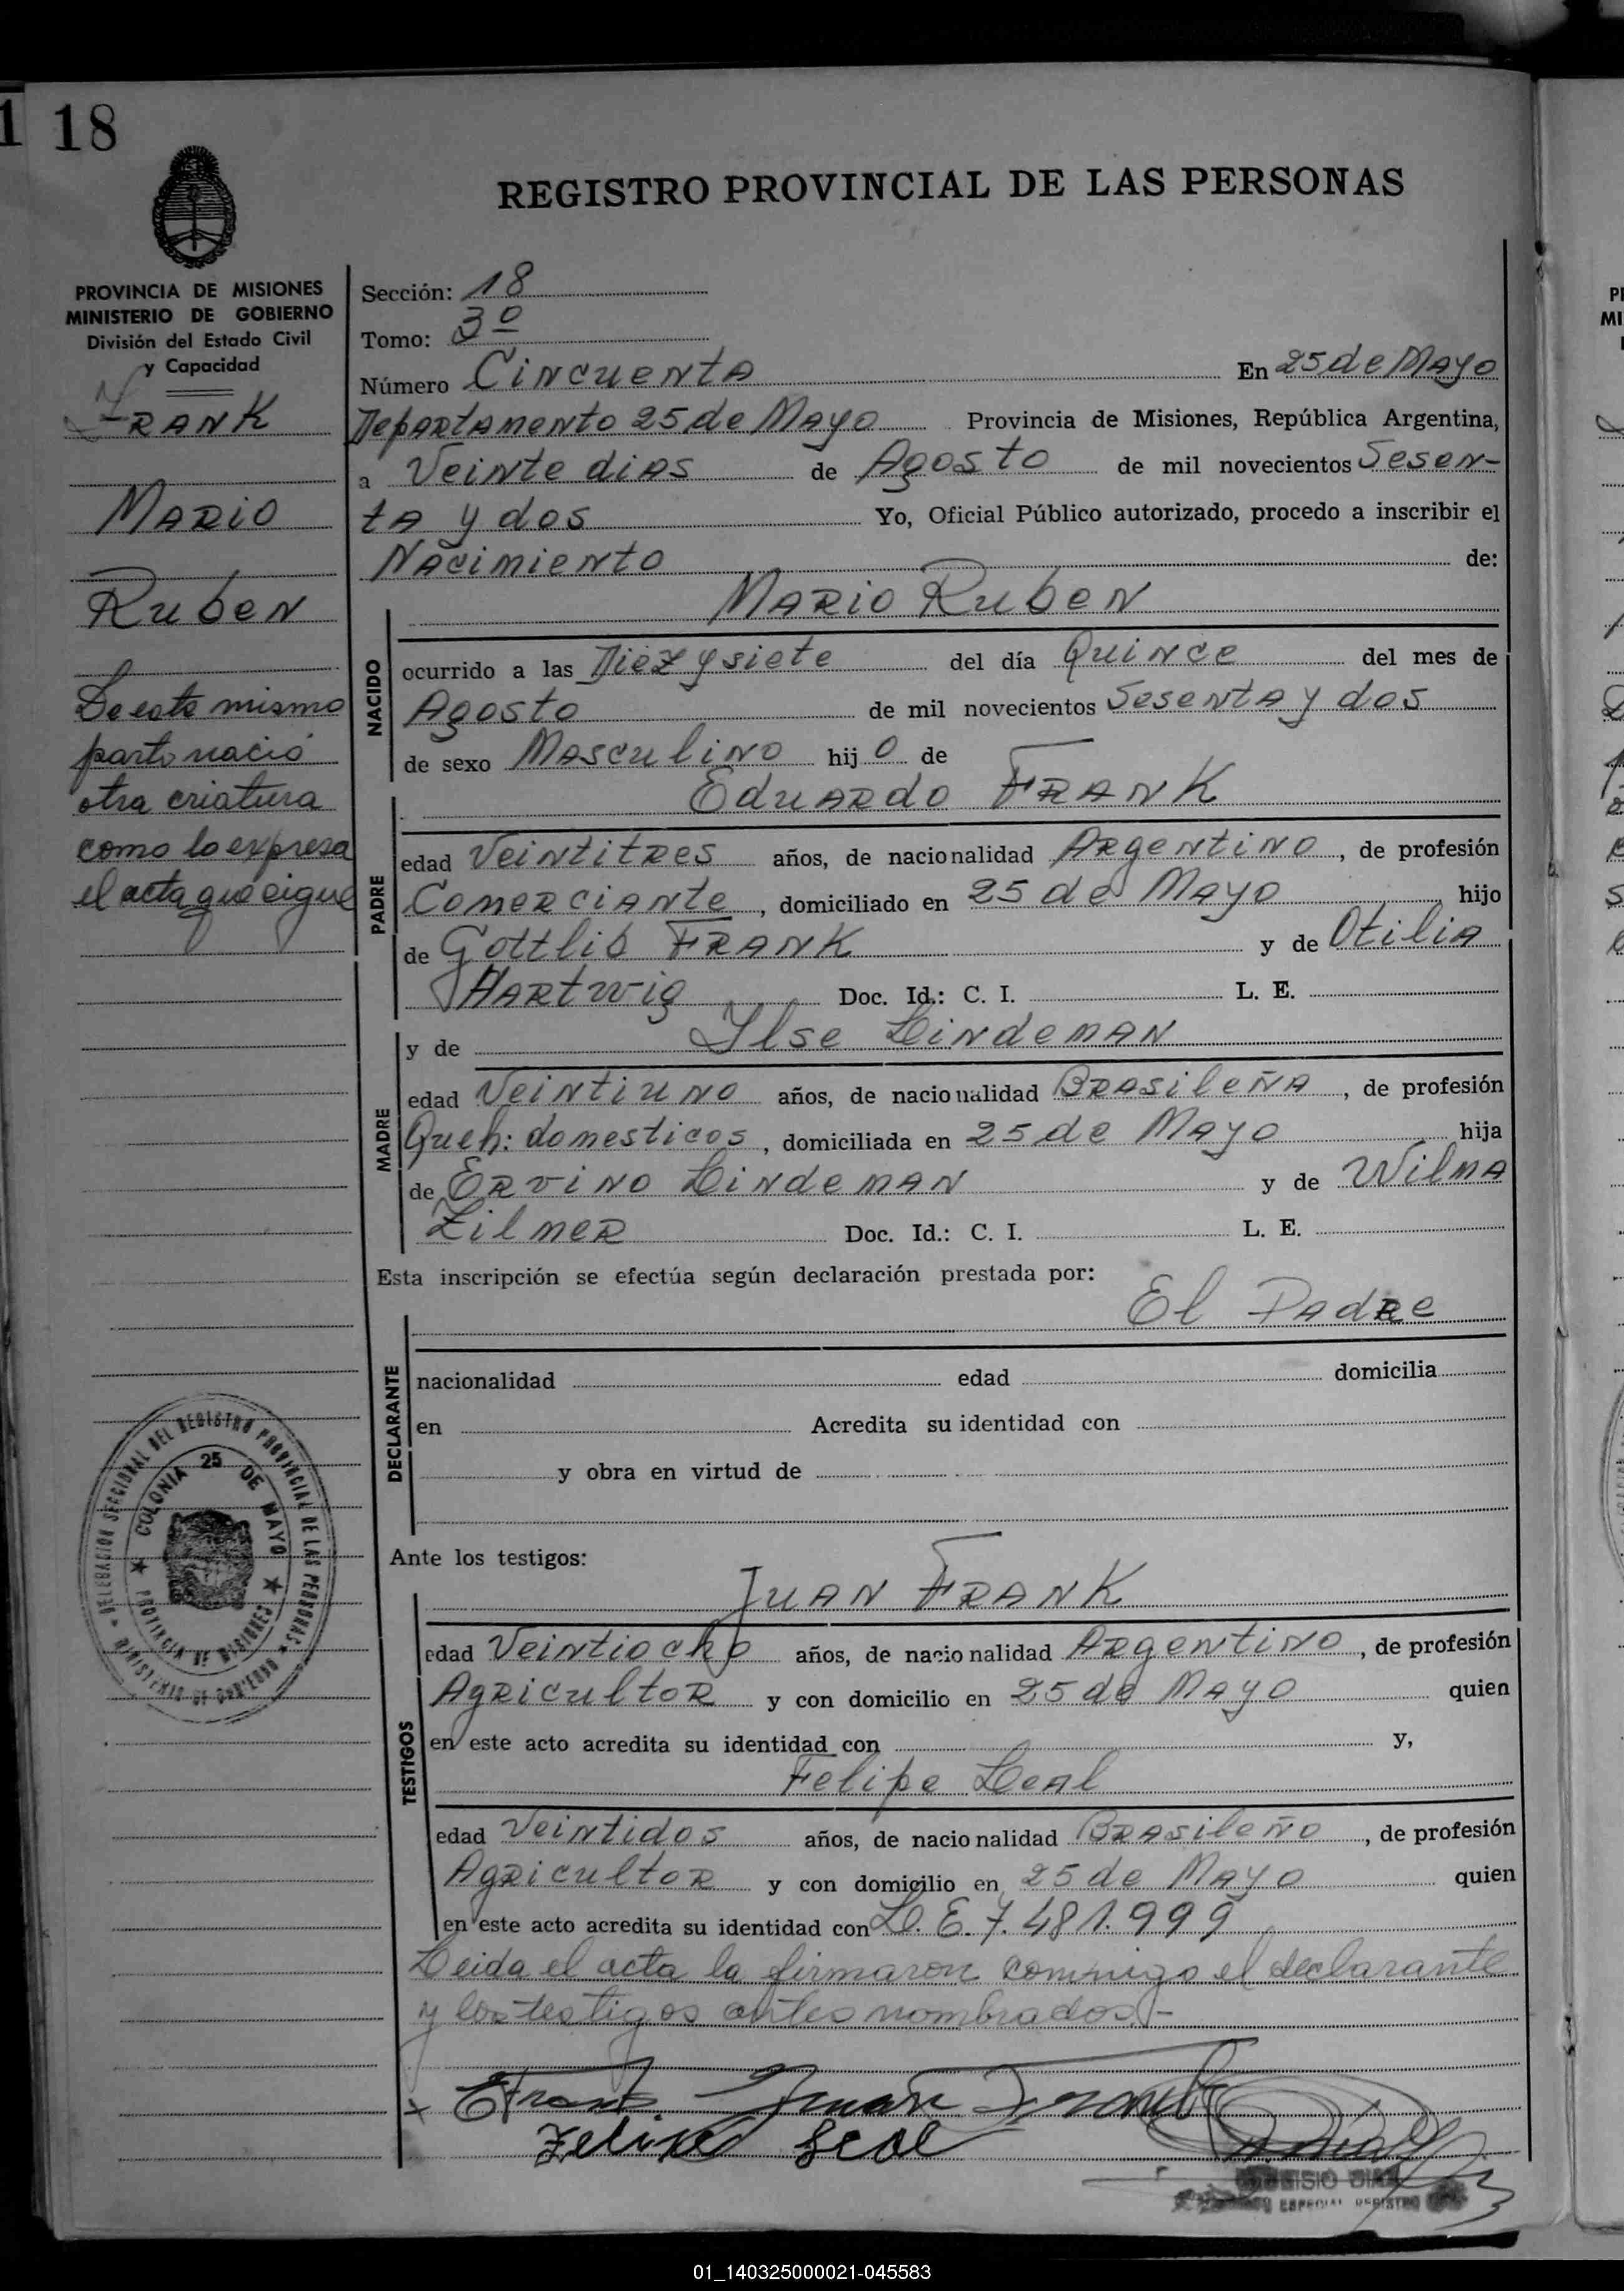 1 18
REGISTRO PROVINCIAL DE LAS PERSONAS
PROVINCIA DE MISIONES
MINISTERIO DE GOBIERNO
División del Estado Civil
y Capacidad
FRANK
MARIO
Ruben
De este mismo
parto nació
otra criatura
como lo expresa
el acta que sigue
Sección: 18
Tomo: 3º
Número Cincuenta En 25 de Mayo
Departamento 25 de Mayo Provincia de Misiones, República Argentina,
a Veinte dias de Agosto de mil novecientos Sesen-
ta y dos Yo, Oficial Público autorizado, procedo a inscribir el
Nacimiento de:
Mario Ruben
NACIDO
ocurrido a las Diez y siete del día Quince del mes de
Agosto de mil novecientos Sesenta y dos
de sexo Masculino hij o de
Eduardo FRANK
PADRE
edad Veintitres años, de nacionalidad Argentino, de profesión
Comerciante, domiciliado en 25 de Mayo hijo
de Gottlib FRANK y de Otilia
Hartwig Doc. Id.: C. I. L. E.
y de Ilse Lindeman
MADRE
edad Veintiuno años, de nacionalidad Brasileña, de profesión
Queh: domesticos, domiciliada en 25 de Mayo hija
de Ervino Lindeman y de Wilma
Zilmer Doc. Id.: C. I. L. E.
Esta inscripción se efectúa según declaración prestada por:
El Padre
DECLARANTE
nacionalidad edad domicilia
en Acredita su identidad con
y obra en virtud de
Ante los testigos:
Juan FRANK
TESTIGOS
edad Veintiocho años, de nacionalidad Argentino, de profesión
Agricultor y con domicilio en 25 de Mayo quien
en este acto acredita su identidad con y,
Felipe Leal
edad Veintidos años, de nacionalidad Brasileño, de profesión
Agricultor y con domicilio en 25 de Mayo quien
en este acto acredita su identidad con L. E. 7.481.999
Leida el acta la firmaron conmigo el declarante
y los testigos antes nombrados.-
EFrank Juan Frank
Felipe Leal
DELEGACION SECCIONAL DEL REGISTRO PROVINCIAL DE LAS PERSONAS
MINISTERIO DE GOBIERNO
COLONIA 25 DE MAYO
PROVINCIA DE MISIONES
ESPECIAL REGISTRO
01_140325000021-045583